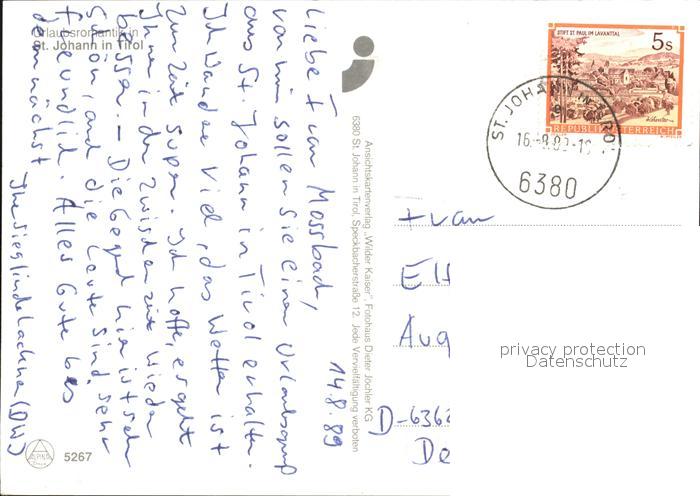 Urlaubsromantik in
St. Johann in Tirol
14.8.89
Liebe Frau Mossbach,
von mir sollen Sie einen Urlaubsgruß
aus St. Johann in Tirol erhalten.
Ich wandere viel, das Wetter ist
zur Zeit super. Ich hoffe, es geht
Ihnen in der Zwischenzeit wieder
besser. – Die Gegend hier ist sehr
schön, und die Leute sind sehr
freundlich. Alles Gute bis
demnächst
Ihre Sieglinde Lachner (DW)
5267
Ansichtskartenverlag „Wilder Kaiser", Fotohaus Dieter Jöchler KG
6380 St. Johann in Tirol, Speckbacherstraße 12. Jede Vervielfältigung verboten
STIFT ST. PAUL IM LAVANTTAL
5s
REPUBLIK ÖSTERREICH
ST. JOHANN IN TIROL
6380
Frau
Ell
Aug
D-6362
privacy protection
Datenschutz